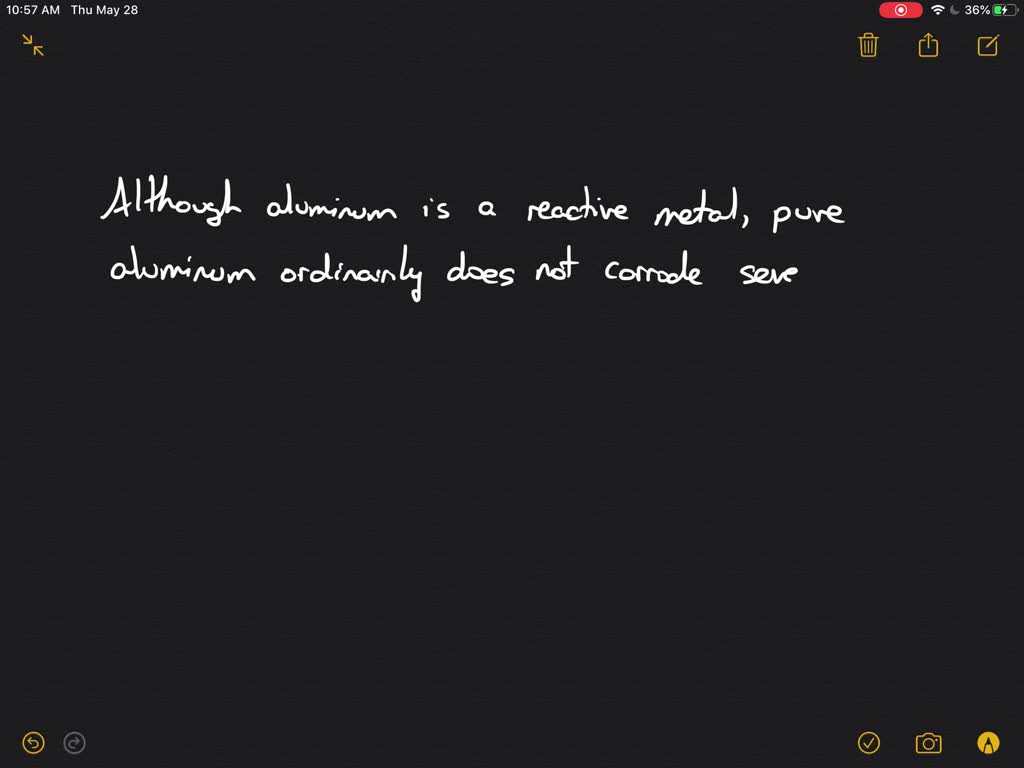 10:57 AM Thu May 28
36%
Although aluminum is a reactive metal, pure
aluminum ordinarily does not corrode seve